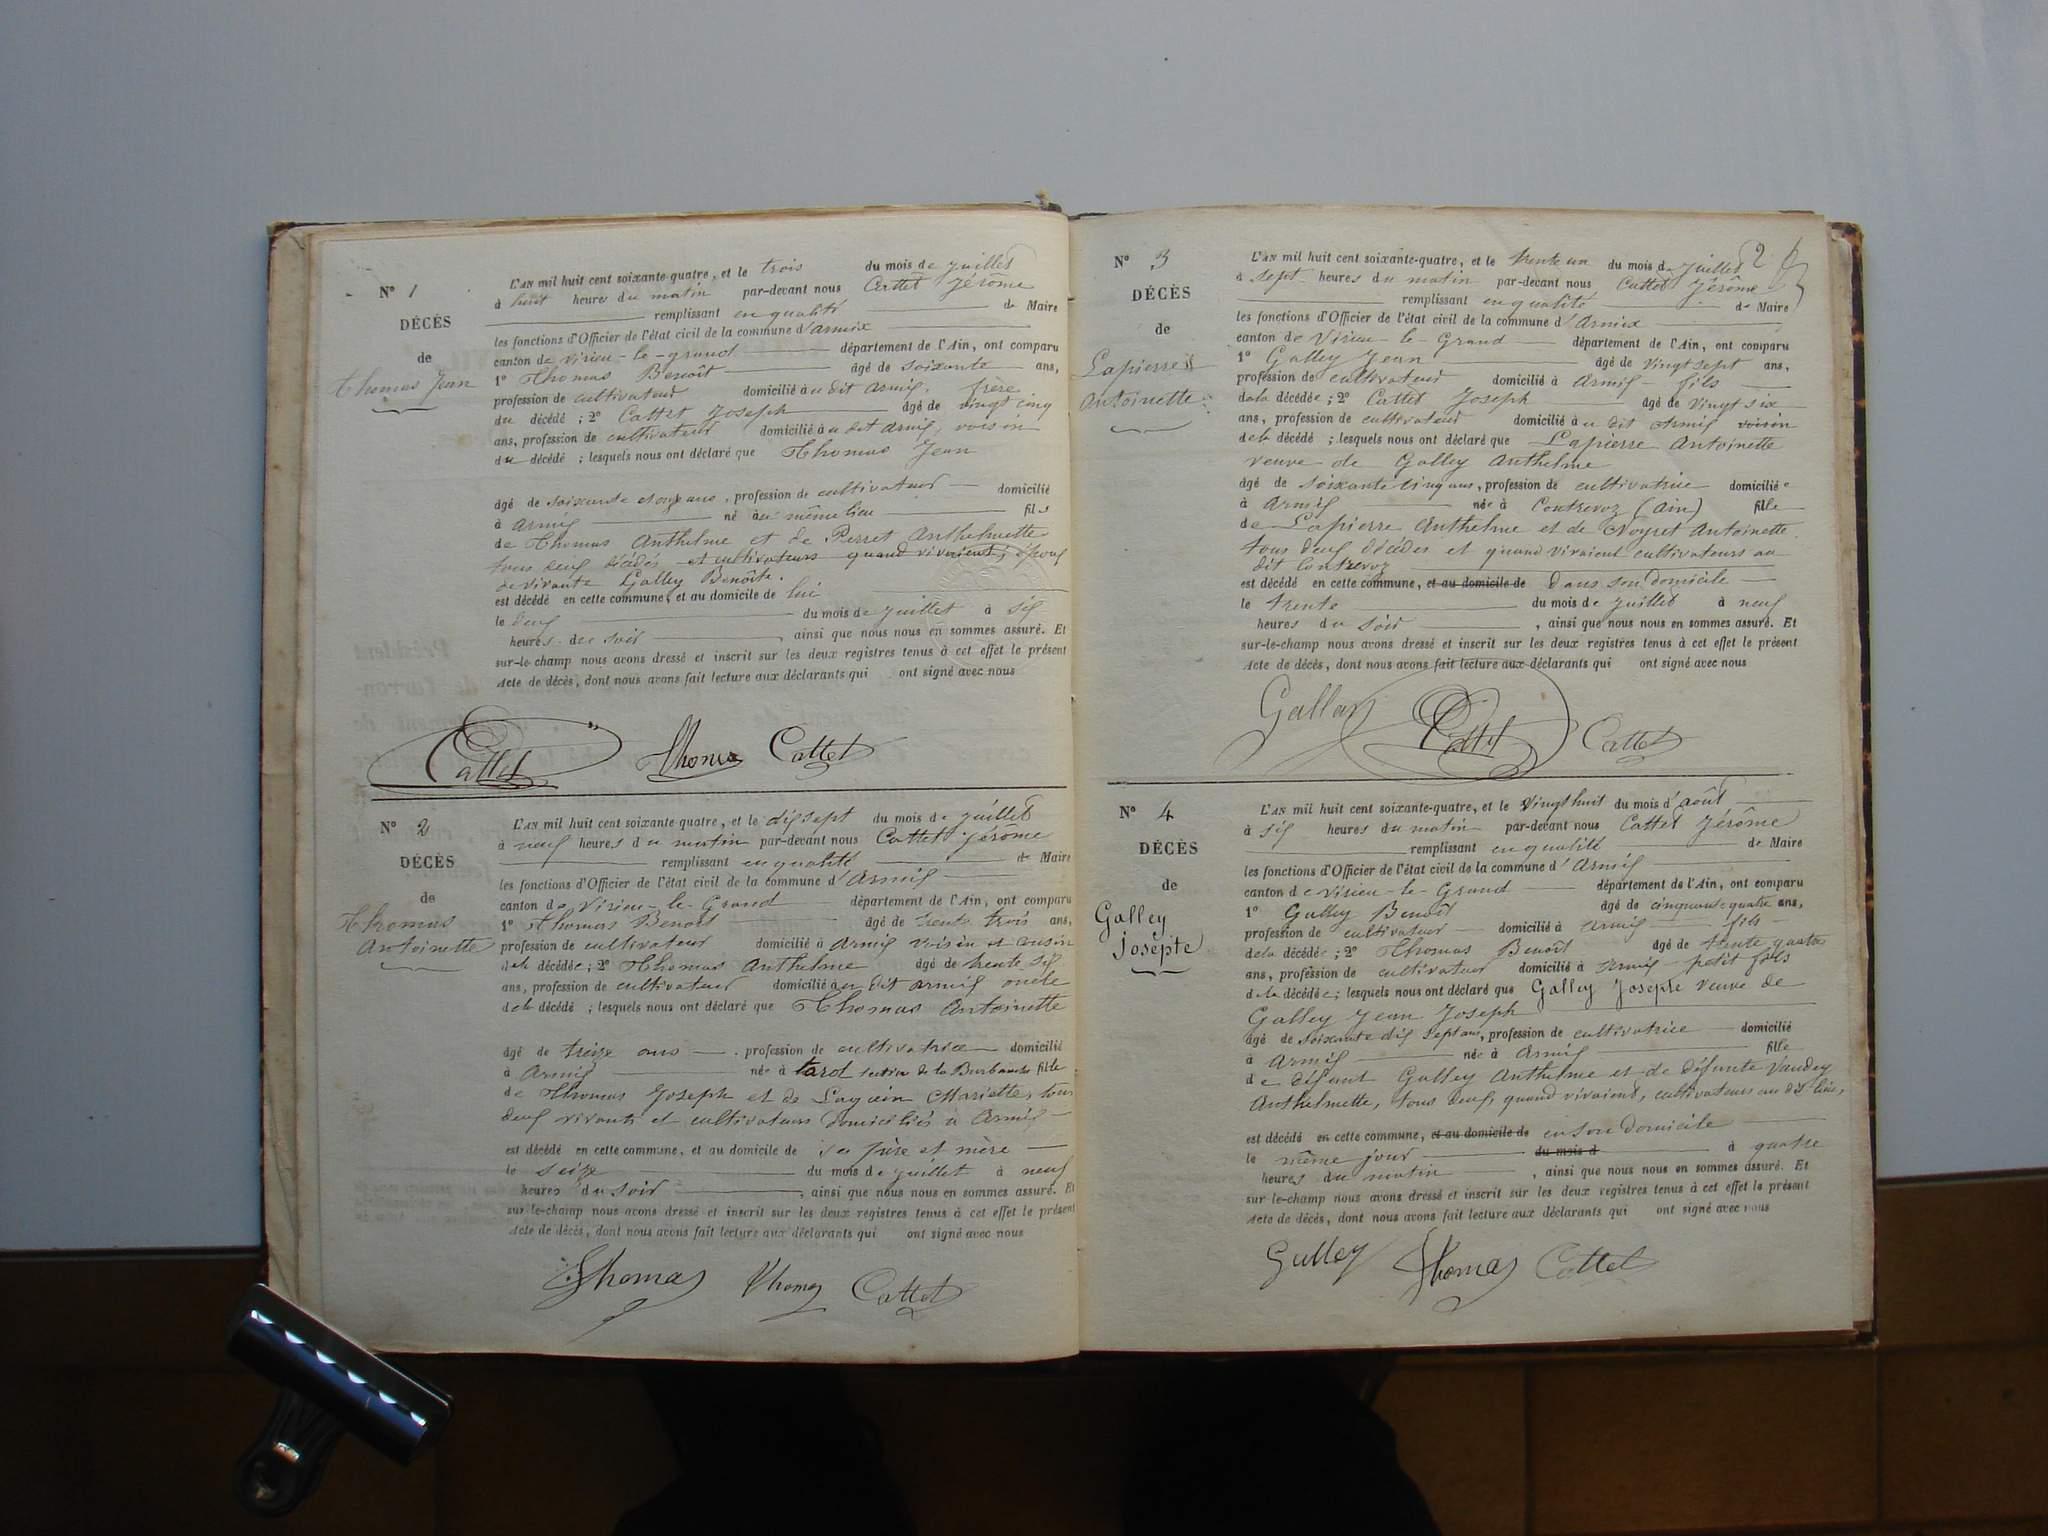 N° 1
DÉCÈS
de
Thomas Jean
L'AN mil huit cent soixante-quatre, et le trois du mois de juillet
à huit heures du matin par-devant nous Cattet Jérôme
remplissant en qualité de Maire
les fonctions d'Officier de l'état civil de la commune d'Armix
canton de Virieu-le-grand département de l'Ain, ont comparu
1° Thomas Benoît âgé de soixante ans,
profession de cultivateur domicilié à u dit Armix, frère
du décédé ; 2° Cattet Joseph âgé de vingt cinq
ans, profession de cultivateur domicilié à u dit Armix, voisin
du décédé ; lesquels nous ont déclaré que Thomas Jean
âgé de soixante et onze ans, profession de cultivateur domicilié
à Armix né au même lieu fils
de Thomas Anthelme et de Perret Anthelmette
tous deux décédés et cultivateurs quand vivaient, époux
de vivante Galley Benoîte.
est décédé en cette commune, et au domicile de lui
le deux du mois de juillet à six
heures du soir, ainsi que nous nous en sommes assuré. Et
sur-le-champ nous avons dressé et inscrit sur les deux registres tenus à cet effet le présent
Acte de décès, dont nous avons fait lecture aux déclarants qui ont signé avec nous
Cattet Thomas Cattet
N° 2
DÉCÈS
de
Thomas
Antoinette
L'AN mil huit cent soixante-quatre, et le dix sept du mois de juillet
à neuf heures du matin par-devant nous Cattet Jérôme
remplissant en qualité de Maire
les fonctions d'Officier de l'état civil de la commune d'Armix
canton de Virieu-le-Grand département de l'Ain, ont comparu
1° Thomas Benoît âgé de trente trois ans,
profession de cultivateur domicilié à Armix voisin et cousin
de la décédée ; 2° Thomas Anthelme âgé de trente six
ans, profession de cultivateur domicilié à u dit Armix oncle
de la décédé ; lesquels nous ont déclaré que Thomas Antoinette
âgé de treize ans, profession de cultivatrice domicilié
à Armix née à tarol section de la Burbanche fille
de Thomas Joseph et de Mariette, tous
deux vivants et cultivateurs domiciliés à Armix
est décédé en cette commune, et au domicile de ses père et mère
le seize du mois de juillet à neuf
heures du soir, ainsi que nous nous en sommes assuré. Et
sur-le-champ nous avons dressé et inscrit sur les deux registres tenus à cet effet le présent
Acte de décès, dont nous avons fait lecture aux déclarants qui ont signé avec nous
Thomas Thomas Cattet
2
N° 3
DÉCÈS
de
Lapierre
Antoinette
L'AN mil huit cent soixante-quatre, et le trente un du mois de juillet
à sept heures du matin par-devant nous Cattet Jérôme
remplissant en qualité de Maire
les fonctions d'Officier de l'état civil de la commune d'Armix
canton de Virieu-le-Grand département de l'Ain, ont comparu
1° Galley Jean âgé de vingt sept ans,
profession de cultivateur domicilié à Armix fils
de la décédée ; 2° Cattet Joseph âgé de vingt six
ans, profession de cultivateur domicilié à u dit Armix voisin
de la décédé ; lesquels nous ont déclaré que Lapierre Antoinette
veuve de Galley Anthelme
âgé de soixante cinq ans, profession de cultivatrice domiciliée
à Armix née à Contrevoz (Ain) fille
de Lapierre Anthelme et de Noyret Antoinette
tous deux décédés et quand vivaient cultivateurs au
dit Contrevoz
est décédé en cette commune, et au domicile de dans son domicile
le trente du mois de juillet à neuf
heures du soir, ainsi que nous nous en sommes assuré. Et
sur-le-champ nous avons dressé et inscrit sur les deux registres tenus à cet effet le présent
Acte de décès, dont nous avons fait lecture aux déclarants qui ont signé avec nous
Galley Cattet Cattet
N° 4
DÉCÈS
de
Galley
Josepte
L'AN mil huit cent soixante-quatre, et le vingt huit du mois d'août
à six heures du matin par-devant nous Cattet Jérôme
remplissant en qualité de Maire
les fonctions d'Officier de l'état civil de la commune d'Armix
canton de Virieu-le-Grand département de l'Ain, ont comparu
1° Galley Benoît âgé de cinquante quatre ans,
profession de cultivateur domicilié à Armix fils
de la décédée ; 2° Thomas Benoît âgé de trente quatre
ans, profession de cultivateur domicilié à Armix petit fils
de la décédée ; lesquels nous ont déclaré que Galley Josepte veuve de
Galley Jean Joseph
âgé de soixante dix sept ans, profession de cultivatrice domicilié
à Armix née à Armix fille
de défunt Galley Anthelme et de défunte Vaudey
Anthelmette, tous deux, quand vivaient, cultivateurs au dit lieu,
est décédé en cette commune, et au domicile de en son domicile
le même jour du mois d à quatre
heures du matin, ainsi que nous nous en sommes assuré. Et
sur-le-champ nous avons dressé et inscrit sur les deux registres tenus à cet effet le présent
Acte de décès, dont nous avons fait lecture aux déclarants qui ont signé avec nous
Galley Thomas Cattet